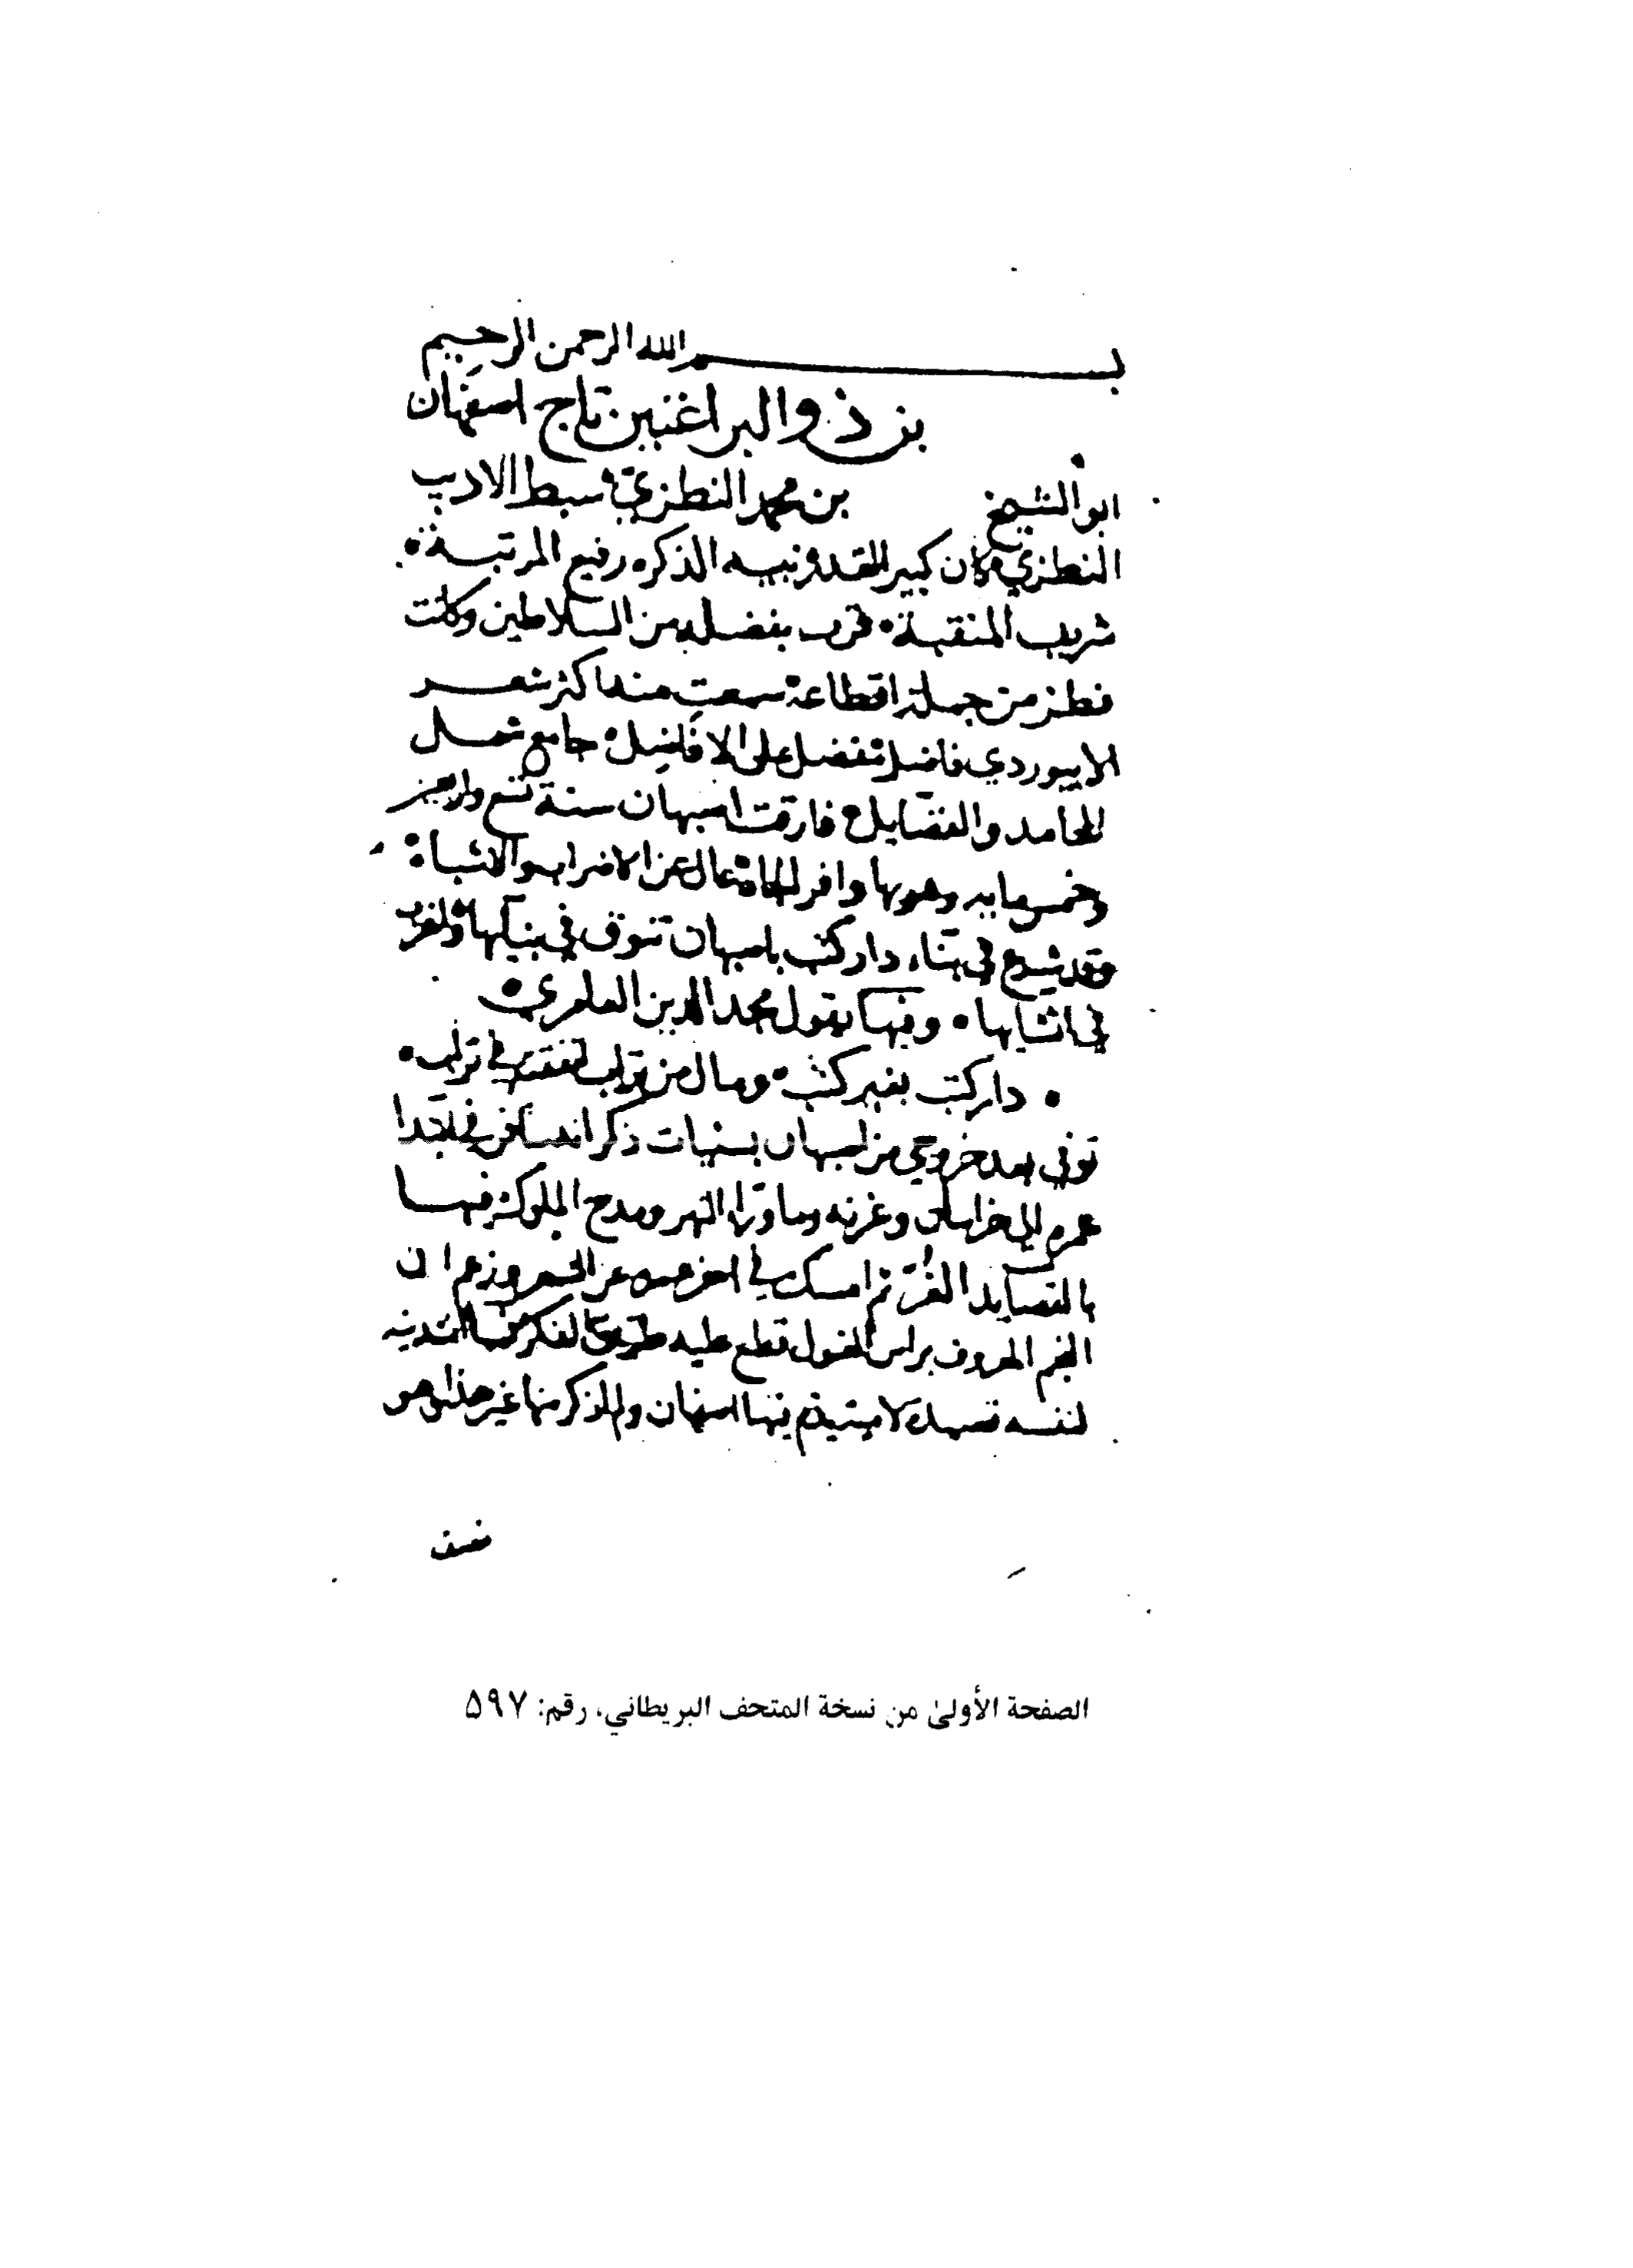 بسم الله الرحمن الرحيم
بن ذو البراغتين تاج اصفهان
ابو الشيخ بن محمد النطنزي سبط الاديب
النطنزي كان كبير القدر نبيه الذكر رفيع المرتبة
شريف المنقبة قرب بفضله من السلاطين وكانت
نطنز من جملة اقطاعه سمعت منه اكثر شعر
الابيوردي فاضل مفضل على الافاضل جامع شمل
المحامد والفضايل فارقت اصبهان سنة تسع واربعين
وخمسمايه وهو بها وافر الجاه عال عن الاضراب والاشباه
وقد شرع في بناء دار كتب باصبهان تنوق في بنيانها
في اثنايها وفيها يقول مجد الدين العلوي
دار كتب بغير كتب ومال من تراب نفقته في تراب
توفي بعد خروجي من اصبهان بسنيات ذكر انه سافر في ابتدا
عمره الى خراسان وغزنه وما ورا النهر ومدح الملوك فيها
بالقصايد الغر ثم امسك في اخر عمره عن الشعر وزعم ان
النجم المعروف براس الغول قطع عليه طريق الفكر
لنفسه قصيدة لا يستقيم فيها اصفهان ولم اذكر منها غير هذا وهو
الصفحة الأولىٰ من نسخة المتحف البريطاني، رقم: ۵۹۷